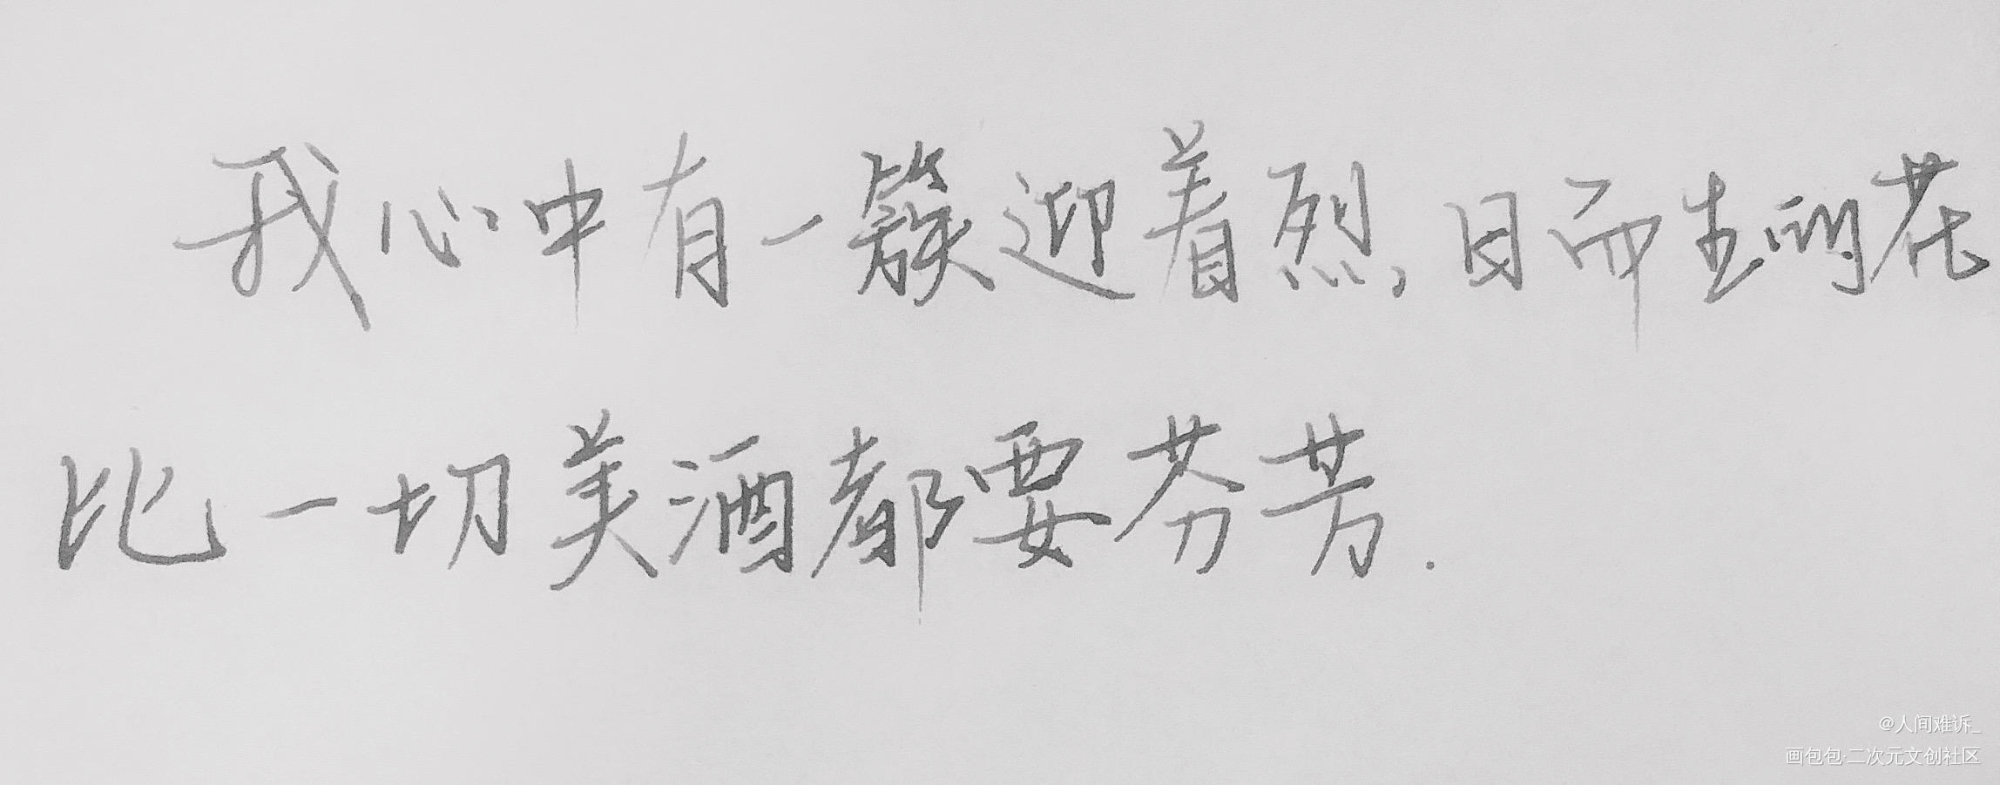 我心中有一簇迎着烈日而生的花
比一切美酒都要芬芳.
@人间难诉_
画包包·二次元文创社区